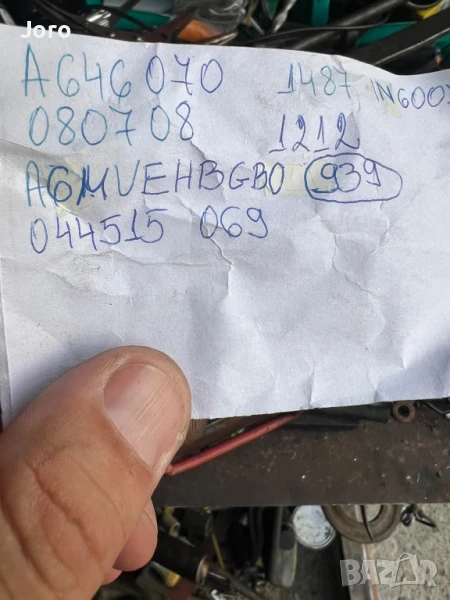 Joro
A646 070 1487 1N600
080708 1212
A6MVEHBGBO 939
044515 069
BAZAR